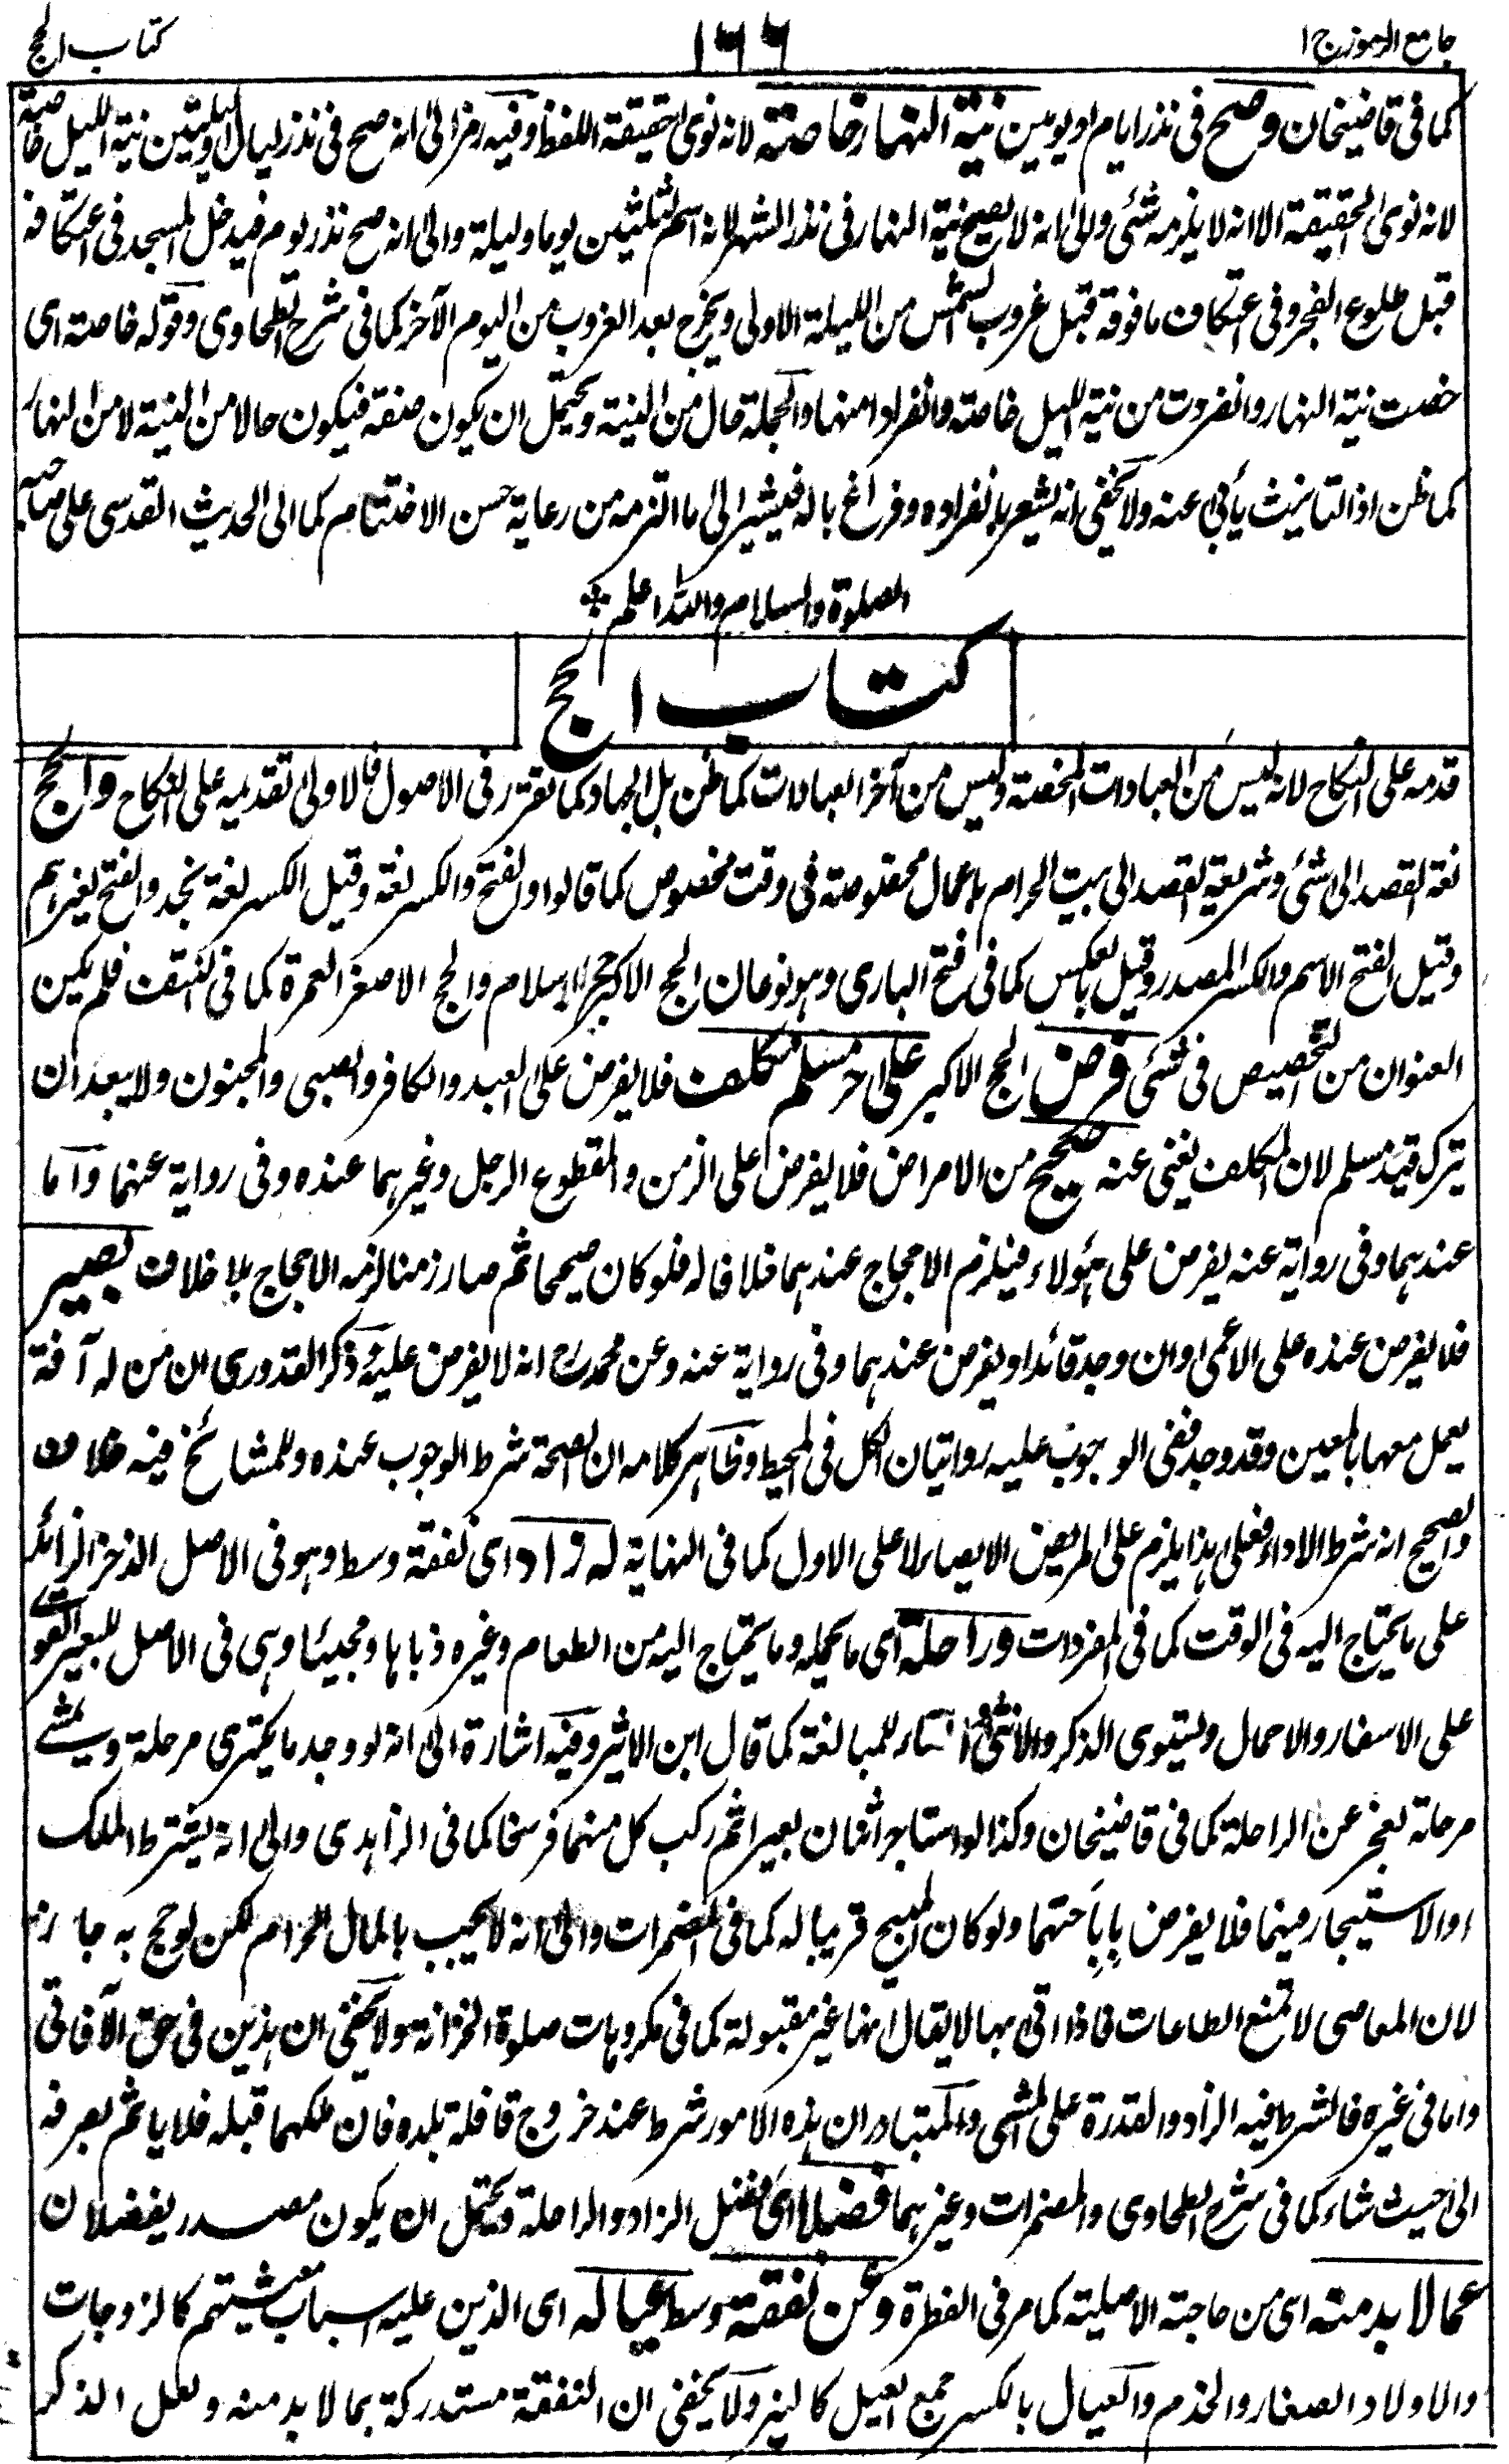 جامع الرموز ج ۱
۱۶۶
كتاب الحج
كما فى قاضيخان وصح فى نذر ايام او يومين نية النهار خاصة لانه نوى حقيقة اللفظ وفيه رمز الى انه صح فى نذر ليال او ليلتين نية الليل خاصة
لانه نوى الحقيقة الا انه لا يلزمه شئ والى انه لا يصح نية النهار فى نذر الشهر لانه اسم لثلثين يوما وليلة والى انه صح نذر يوم فيدخل المسجد فى اعتكافه
قبل طلوع الفجر وفى اعتكاف ما فوقه قبل غروب الشمس من الليلة الاولى ويخرج بعد الغروب من اليوم الآخر كما فى شرح الطحاوى وقوله خاصة اى
خصت نية النهار وانفردت من نية الليل خاصة وانفرادا منها والجملة حال من النية ويحتمل ان يكون صفة فيكون حالا من النية لا من النهار
كما ظن اذ التانيث يأبى عنه ولا يخفى انه يشعر بانفراده وفراغ باله فيشير الى ما التزمه من رعاية حسن الاختتام كما الى الحديث القدسى على صاحبه
الصلوة والسلام والله اعلم
كتاب الحج
قدمه على النكاح لانه ليس من العبادات المحضة وليس من آخر العبادات كما ظن بل الجهاد كما تقرر فى الاصول فالاولى تقديمه على النكاح والحج
لغة القصد الى شئ وشريعة القصد الى بيت الحرام باعمال مخصوصة فى وقت مخصوص كما قالوا والفتح والكسر لغة وقيل الكسر لغة نجد والفتح لغيرهم
وقيل الفتح الاسم والكسر المصدر وقيل بالعكس كما فى فتح البارى وهو نوعان الحج الاكبر حج الاسلام والحج الاصغر العمرة كما فى النتف فلم يكن
العنوان من التخصيص فى شئ فرض الحج الاكبر على حر مسلم مكلف فلا يفرض على العبد والكافر والصبى والمجنون ولا يبعد ان
يترك قيد مسلم لان المكلف يغنى عنه صحيح من الامراض فلا يفرض على الزمن والمقطوع الرجل وغيرهما عنده وفى رواية عنهما واما
عندهما وفى رواية عنه يفرض على هؤلاء فيلزم الاحجاج عندهما خلافا له فلو كان صحيحا ثم صار زمنا لزمه الاحجاج بلا خلاف بصير
فلا يفرض عنده على الاعمى وان وجد قائدا ويفرض عندهما وفى رواية عنه وعن محمد رح انه لا يفرض عليه وذكر القدورى ان من له آفة
يعمل معها بالمعين وقد وجد ففى الوجوب عليه روايتان الكل فى المحيط وظاهر كلامه ان الصحة شرط الوجوب عنده وللمشائخ فيه خلاف
والصحيح انه شرط الاداء فعلى هذا يلزم على المريض الايصاء لا على الاول كما فى النهاية له زاد اى نفقة وسط وهو فى الاصل الذخر الزائد
على ما يحتاج اليه فى الوقت كما فى المفردات وراحلة اى ما يحمله وما يحتاج اليه من الطعام وغيره ذهابا ومجيئا وهى فى الاصل للبعير القوى
على الاسفار والاحمال ويستوى الذكر والانثى التاء للمبالغة كما قال ابن الاثير وفيه اشارة الى انه لو وجد ما يكترى مرحلة ويمشى
مرحلة لعجز عن الراحلة كما فى قاضيخان وكذا لو استاجر اثنان بعيرا ثم ركب كل منهما فرسخا كما فى الزاهدى والى انه يشترط الملك
او الاستيجار فيهما فلا يفرض باباحتهما ولو كان المبيح قريبا له كما فى المضمرات والى انه لا يجب بالمال الحرام لكن لو حج به جاز
لان المعاصى لا تمنع الطاعات فاذا اتى بها لا يقال انها غير مقبولة كما فى مكروهات صلوة الخزانة ولا يخفى ان هذين فى حق الآفاقى
واما فى غيره فالشرط فيه الزاد والقدرة على المشى والمتبادر ان هذه الامور شرط عند خروج قافلة بلده فان ملكهما قبله فلا ياثم بصرفه
الى حيث شاء كما فى شرح الطحاوى والمضمرات وغيرهما فضلا اى فضل الزاد والراحلة ويحتمل ان يكون مصدر يفضلان
عما لا بد منه اى من حاجته الاصلية كما مر فى الفطرة وعن نفقة وسط عياله اى الذين عليه اسباب معيشتهم كالزوجات
والاولاد الصغار والخدم والعيال بالكسر جمع العيل كالخير ولا يخفى ان النفقة مستدركة بما لا بد منه ولعل الذكر